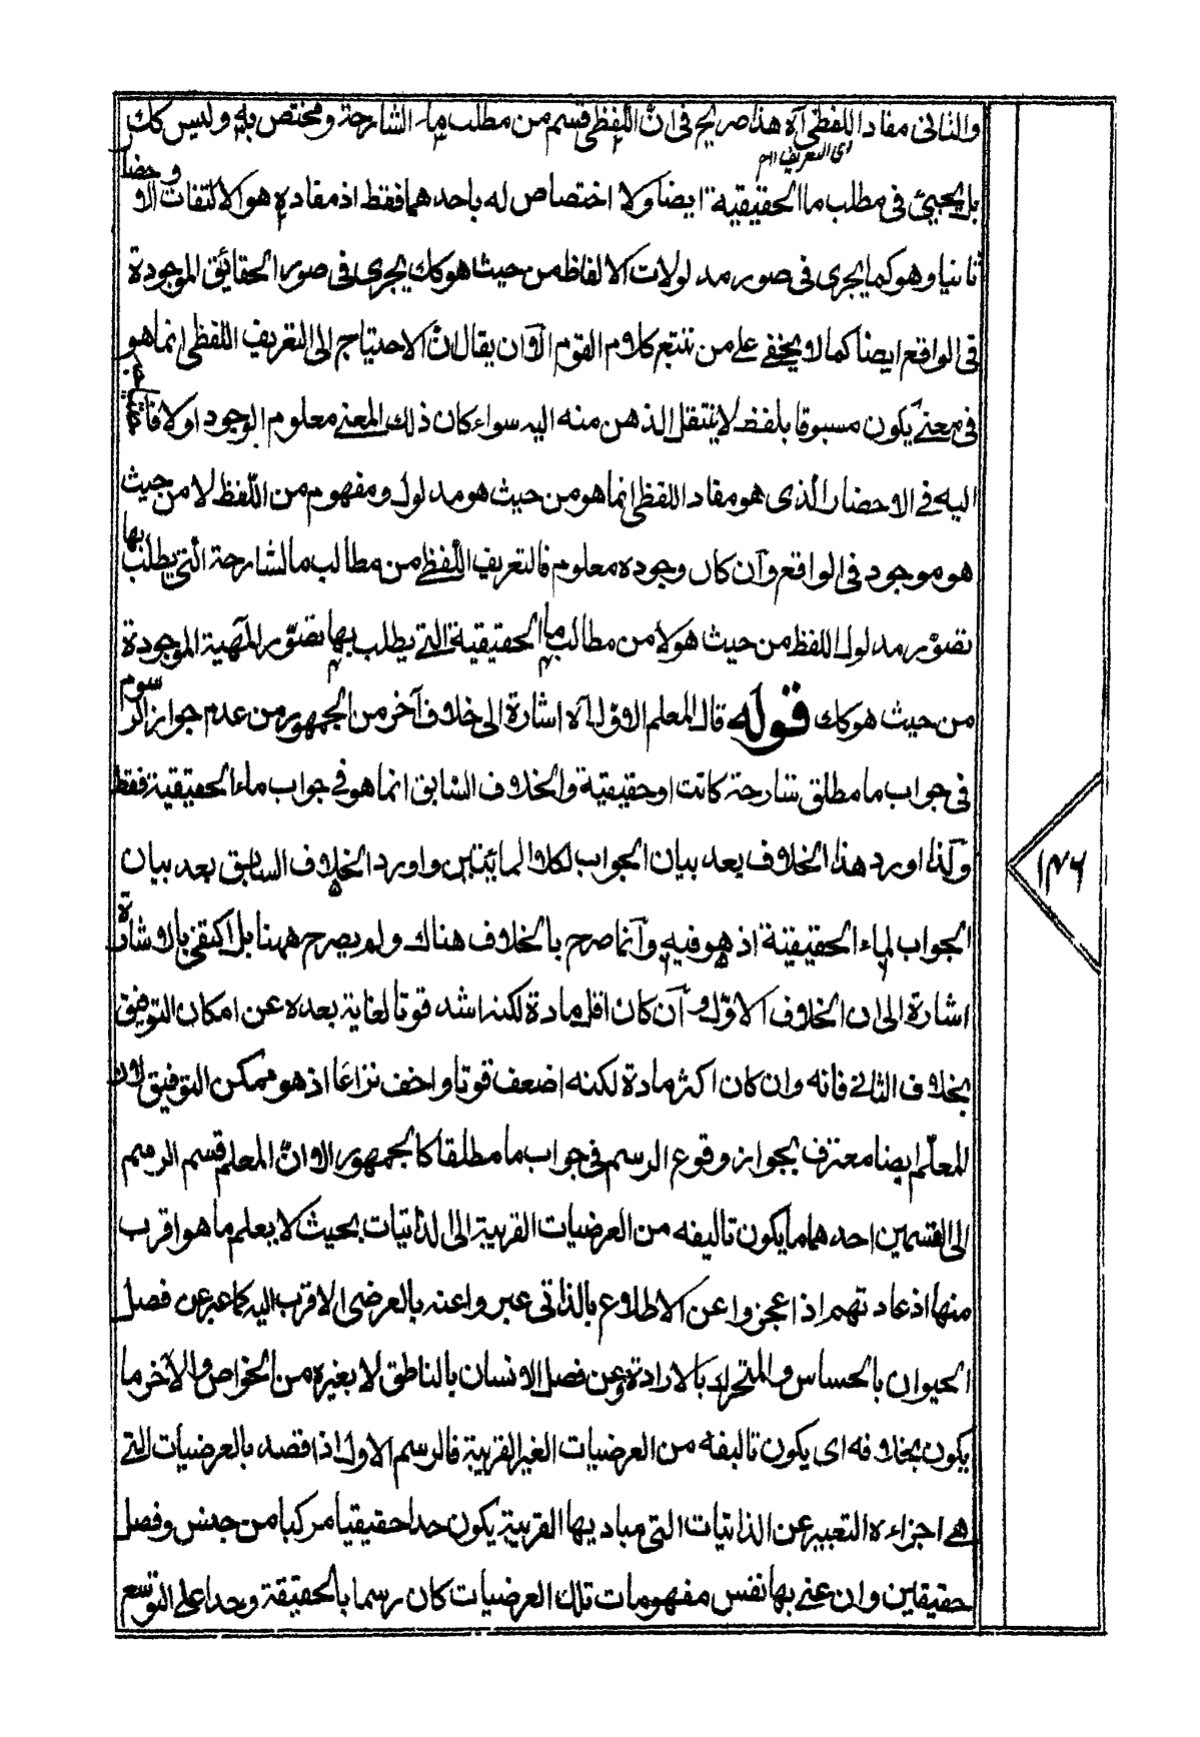 والثانى مفاد اللفظى آه هذا صريح فى انّ اللّفظى قسم من مطلب ما الشارحة ومختص به وليس كك
اى التعريف اللـ
بل يجيئ فى مطلب ما الحقيقية ايضا ولا اختصاص له باحدهما فقط اذ مفاده هو الالتفات والاحضار
ثانيا وهو كما يجرى فى صور مدلولات الالفاظ من حيث هو كك يجرى فى صور الحقائق الموجودة
فى الواقع ايضا كما لا يخفى على من تتبع كلام القوم الا ان يقال انّ الاحتياج الى التعريف اللفظى انما هو
فى معنى يكون مسبوقا بلفظ لا ينتقل الذهن منه اليه سواء كان ذلك المعنى معلوم الوجود اولا فالتفات
اليه فى الاحضار الذى هو مفاد اللفظى انما هو من حيث هو مدلول ومفهوم من اللّفظ لا من حيث
هو موجود فى الواقع وان كان وجوده معلوم فالتعريف اللّفظى من مطالب ما الشارحة التى يطلب بها
تصوّر مدلول اللفظ من حيث هو لا من مطالب ما الحقيقية التى يطلب بها تصوّر المهية الموجودة
من حيث هو كك قوله قال المعلم الاول آه اشارة الى خلاف آخر من الجمهور من عدم جواز الرسوم
فى جواب ما مطلق شارحة كانت او حقيقية والخلاف السّابق انما هو فى جواب ماء الحقيقية فقط
ولذا اورد هذا الخلاف بعد بيان الجواب لكلا المائيتين واورد الخلاف السابق بعد بيان
الجواب لماء الحقيقية اذ هو فيه وانما صرح بالخلاف هناك ولم يصرح ههنا بل اكتفى بالاشارة
اشارة الى ان الخلاف الاوّل وان كان اقل مادة لكنه اشد قوتا لغاية بعده عن امكان التوفيق
بخلاف الثانى فانه وان كان اكثر مادة لكنه اضعف قوتا واخف نزاعًا اذ هو ممكن التوفيق لان
المعلّم ايضا معترف بجواز وقوع الرسم فى جواب ما مطلقا كالجمهور الا انّ المعلم قسم الرسم
الى القسمين احدهما ما يكون تاليفه من العرضيات القريبة الى الذاتيات بحيث لا يعلم ما هو اقرب
منها اذ عادتهم اذا عجزوا عن الاطلاع بالذاتى عبروا عنه بالعرضى الاقرب اليه كما عبر عن فصل
الحيوان بالحساس والمتحرك بالارادة وعن فصل الانسان بالناطق لا بغيره من الخواص والآخر ما
يكون بخلافه اى يكون تاليفه من العرضيات الغير القريبة فالرسم الاول اذا قصد بالعرضيات التى
هى اجزاءه التعبير عن الذاتيات التى مباديها القريبة يكون حدا حقيقيا مركبا من جنس وفصل
حقيقين وان عنى بها نفس مفهومات تلك العرضيات كان رسما بالحقيقة وحدا على التوسع